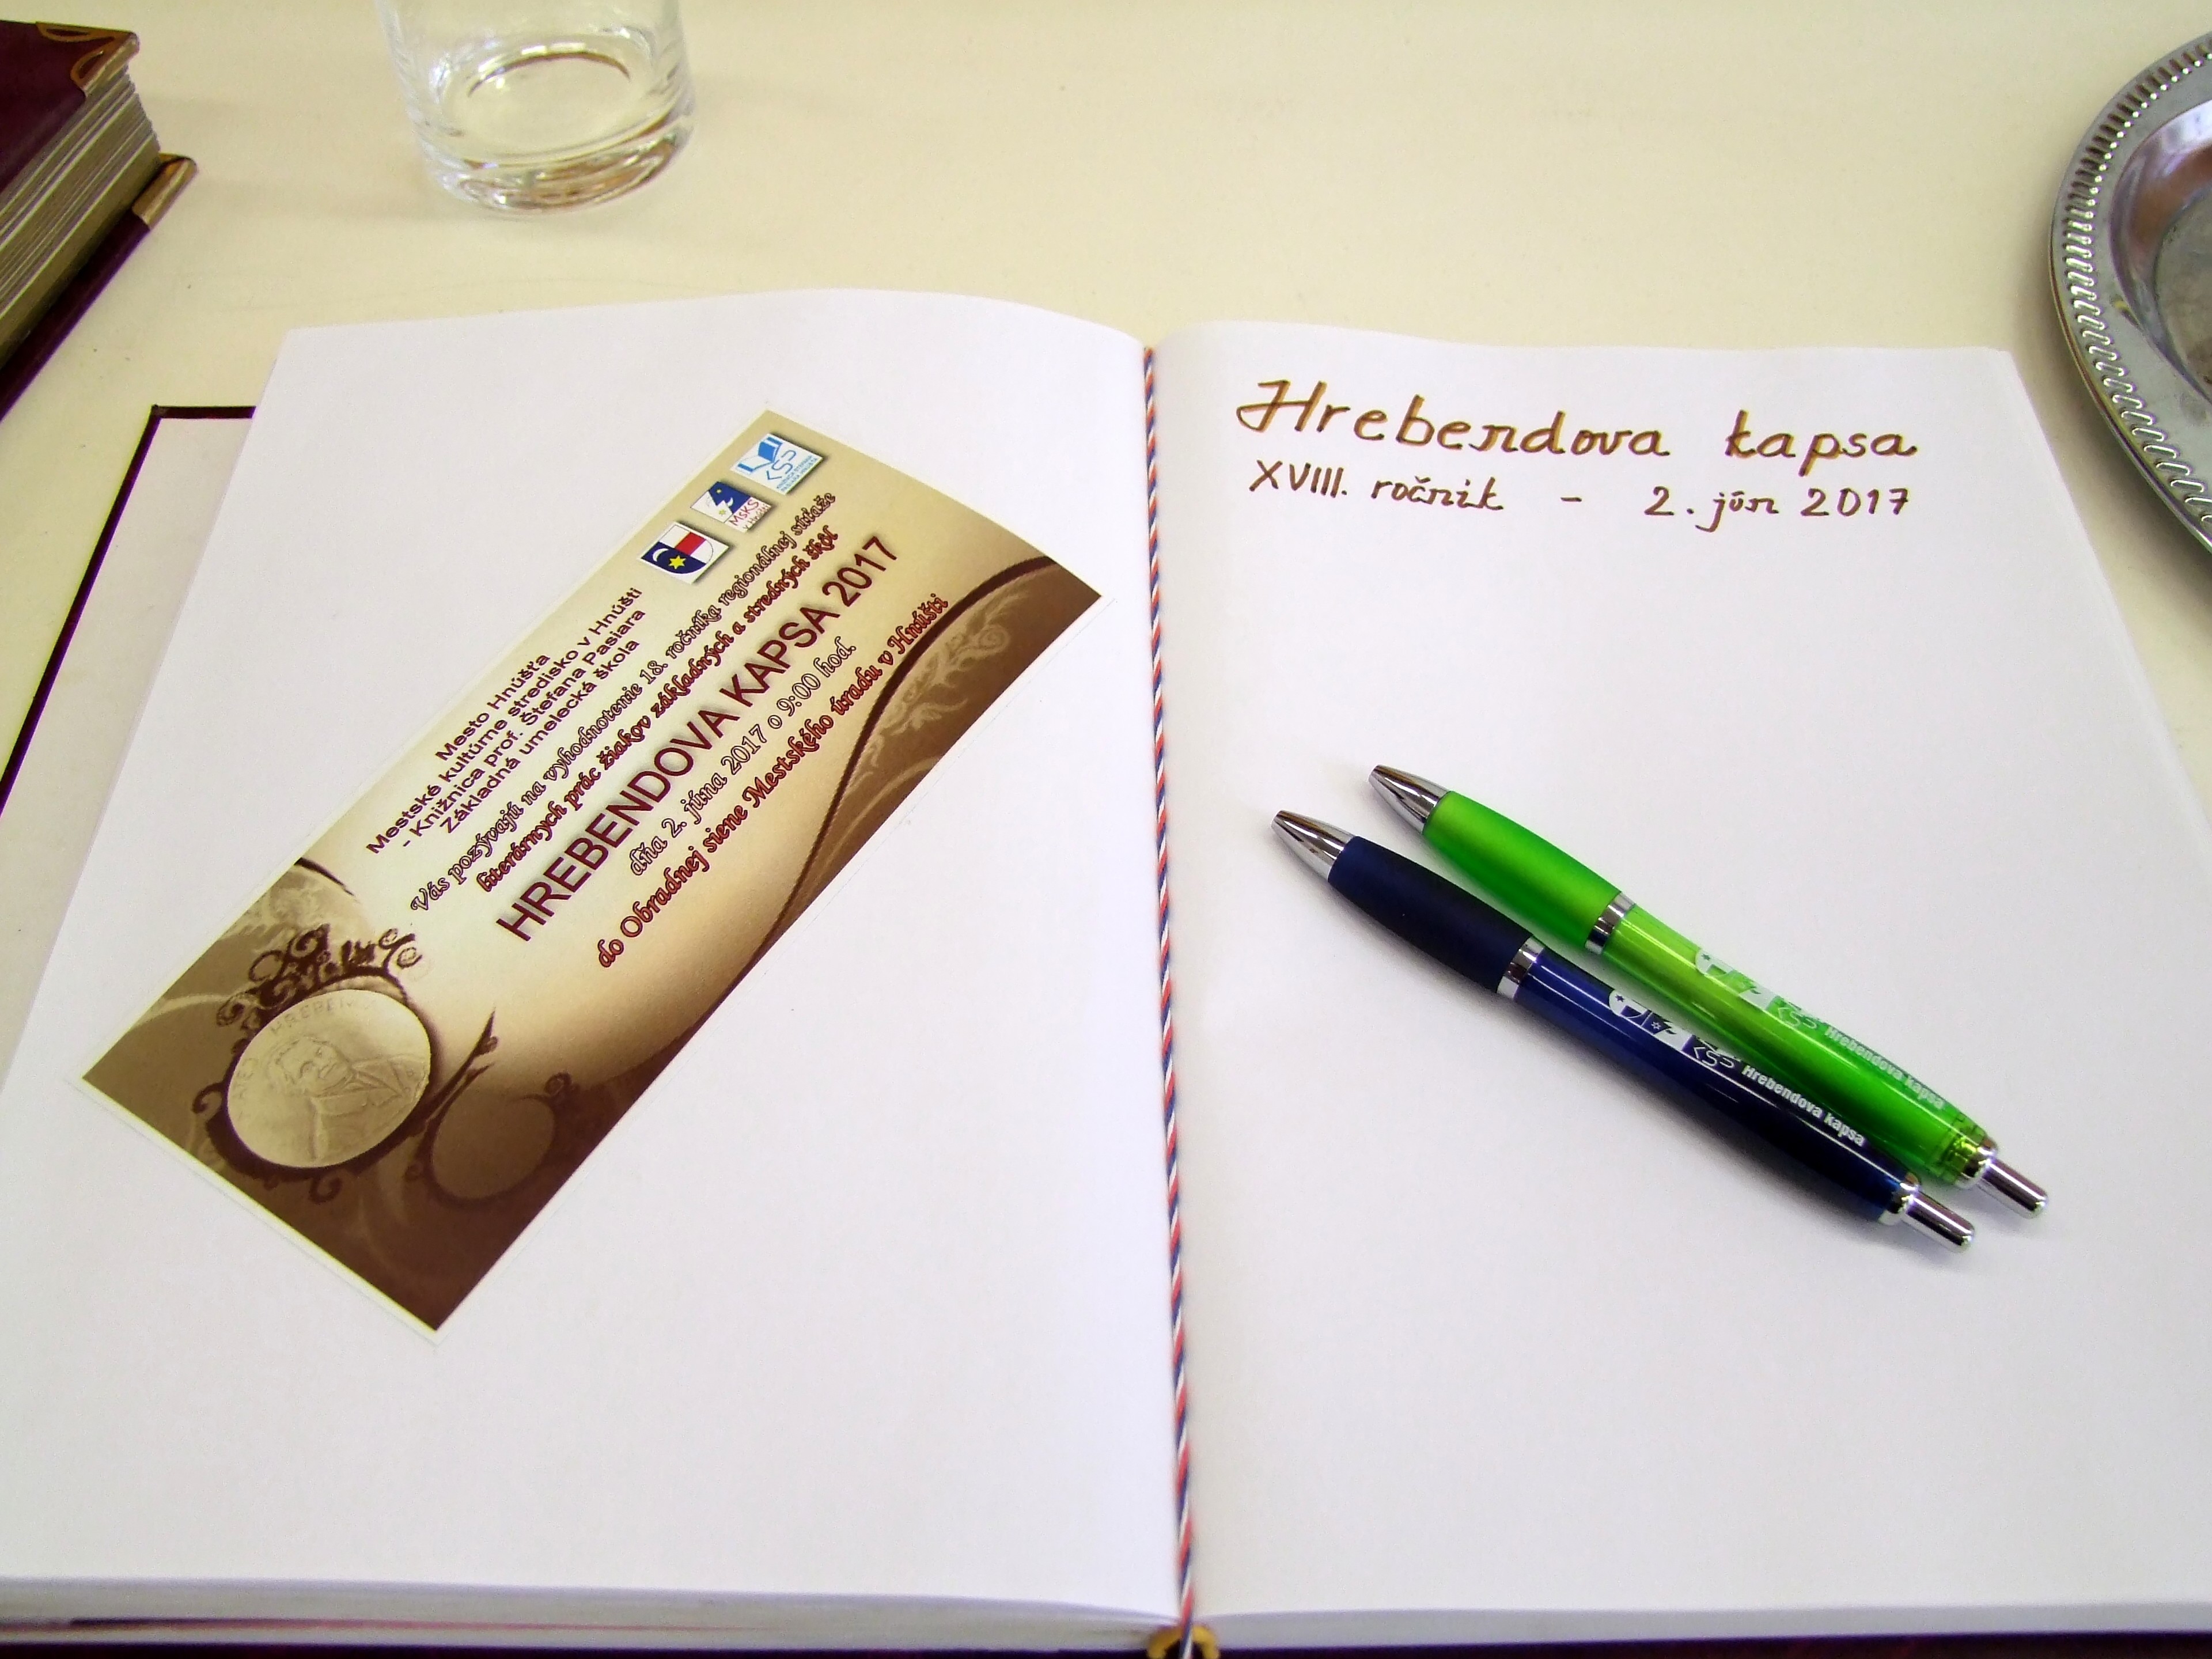 Mesto Hnúšťa
Mestské kultúrne stredisko v Hnúšti
- Knižnica prof. Štefana Pasiara
Základná umelecká škola
Vás pozývajú na vyhodnotenie 18. ročníka regionálnej súťaže
literárnych prác žiakov základných a stredných škôl
HREBENDOVA KAPSA 2017
dňa 2. júna 2017 o 9:00 hod.
do Obradnej siene Mestského úradu v Hnúšti
MsKS
Hrebendova kapsa
XVIII. ročník - 2. jún 2017
Hrebendova kapsa
Hrebendova kapsa